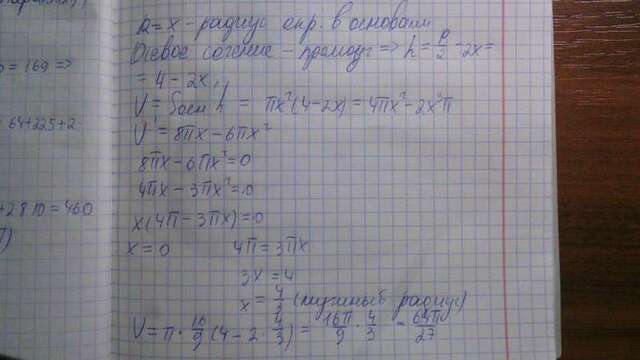 R=x - радиус окр. в основании
Осевое сечение - прямоуг => h = P/2 - 2x =
= 4 - 2x,
V = Sосн h = πx²(4-2x) = 4πx² - 2x³π
V' = 8πx - 6πx²
8πx - 6πx² = 0
4πx - 3πx² = 0
x(4π - 3πx) = 0
x = 0 4π = 3πx
3x = 4
x = 4/3 (нужный радиус)
V = π · 16/9 (4 - 2 · 4/3) = 16π/9 · 4/3 = 64π/27
= 169 =>
64+225+2
+2810 = 460